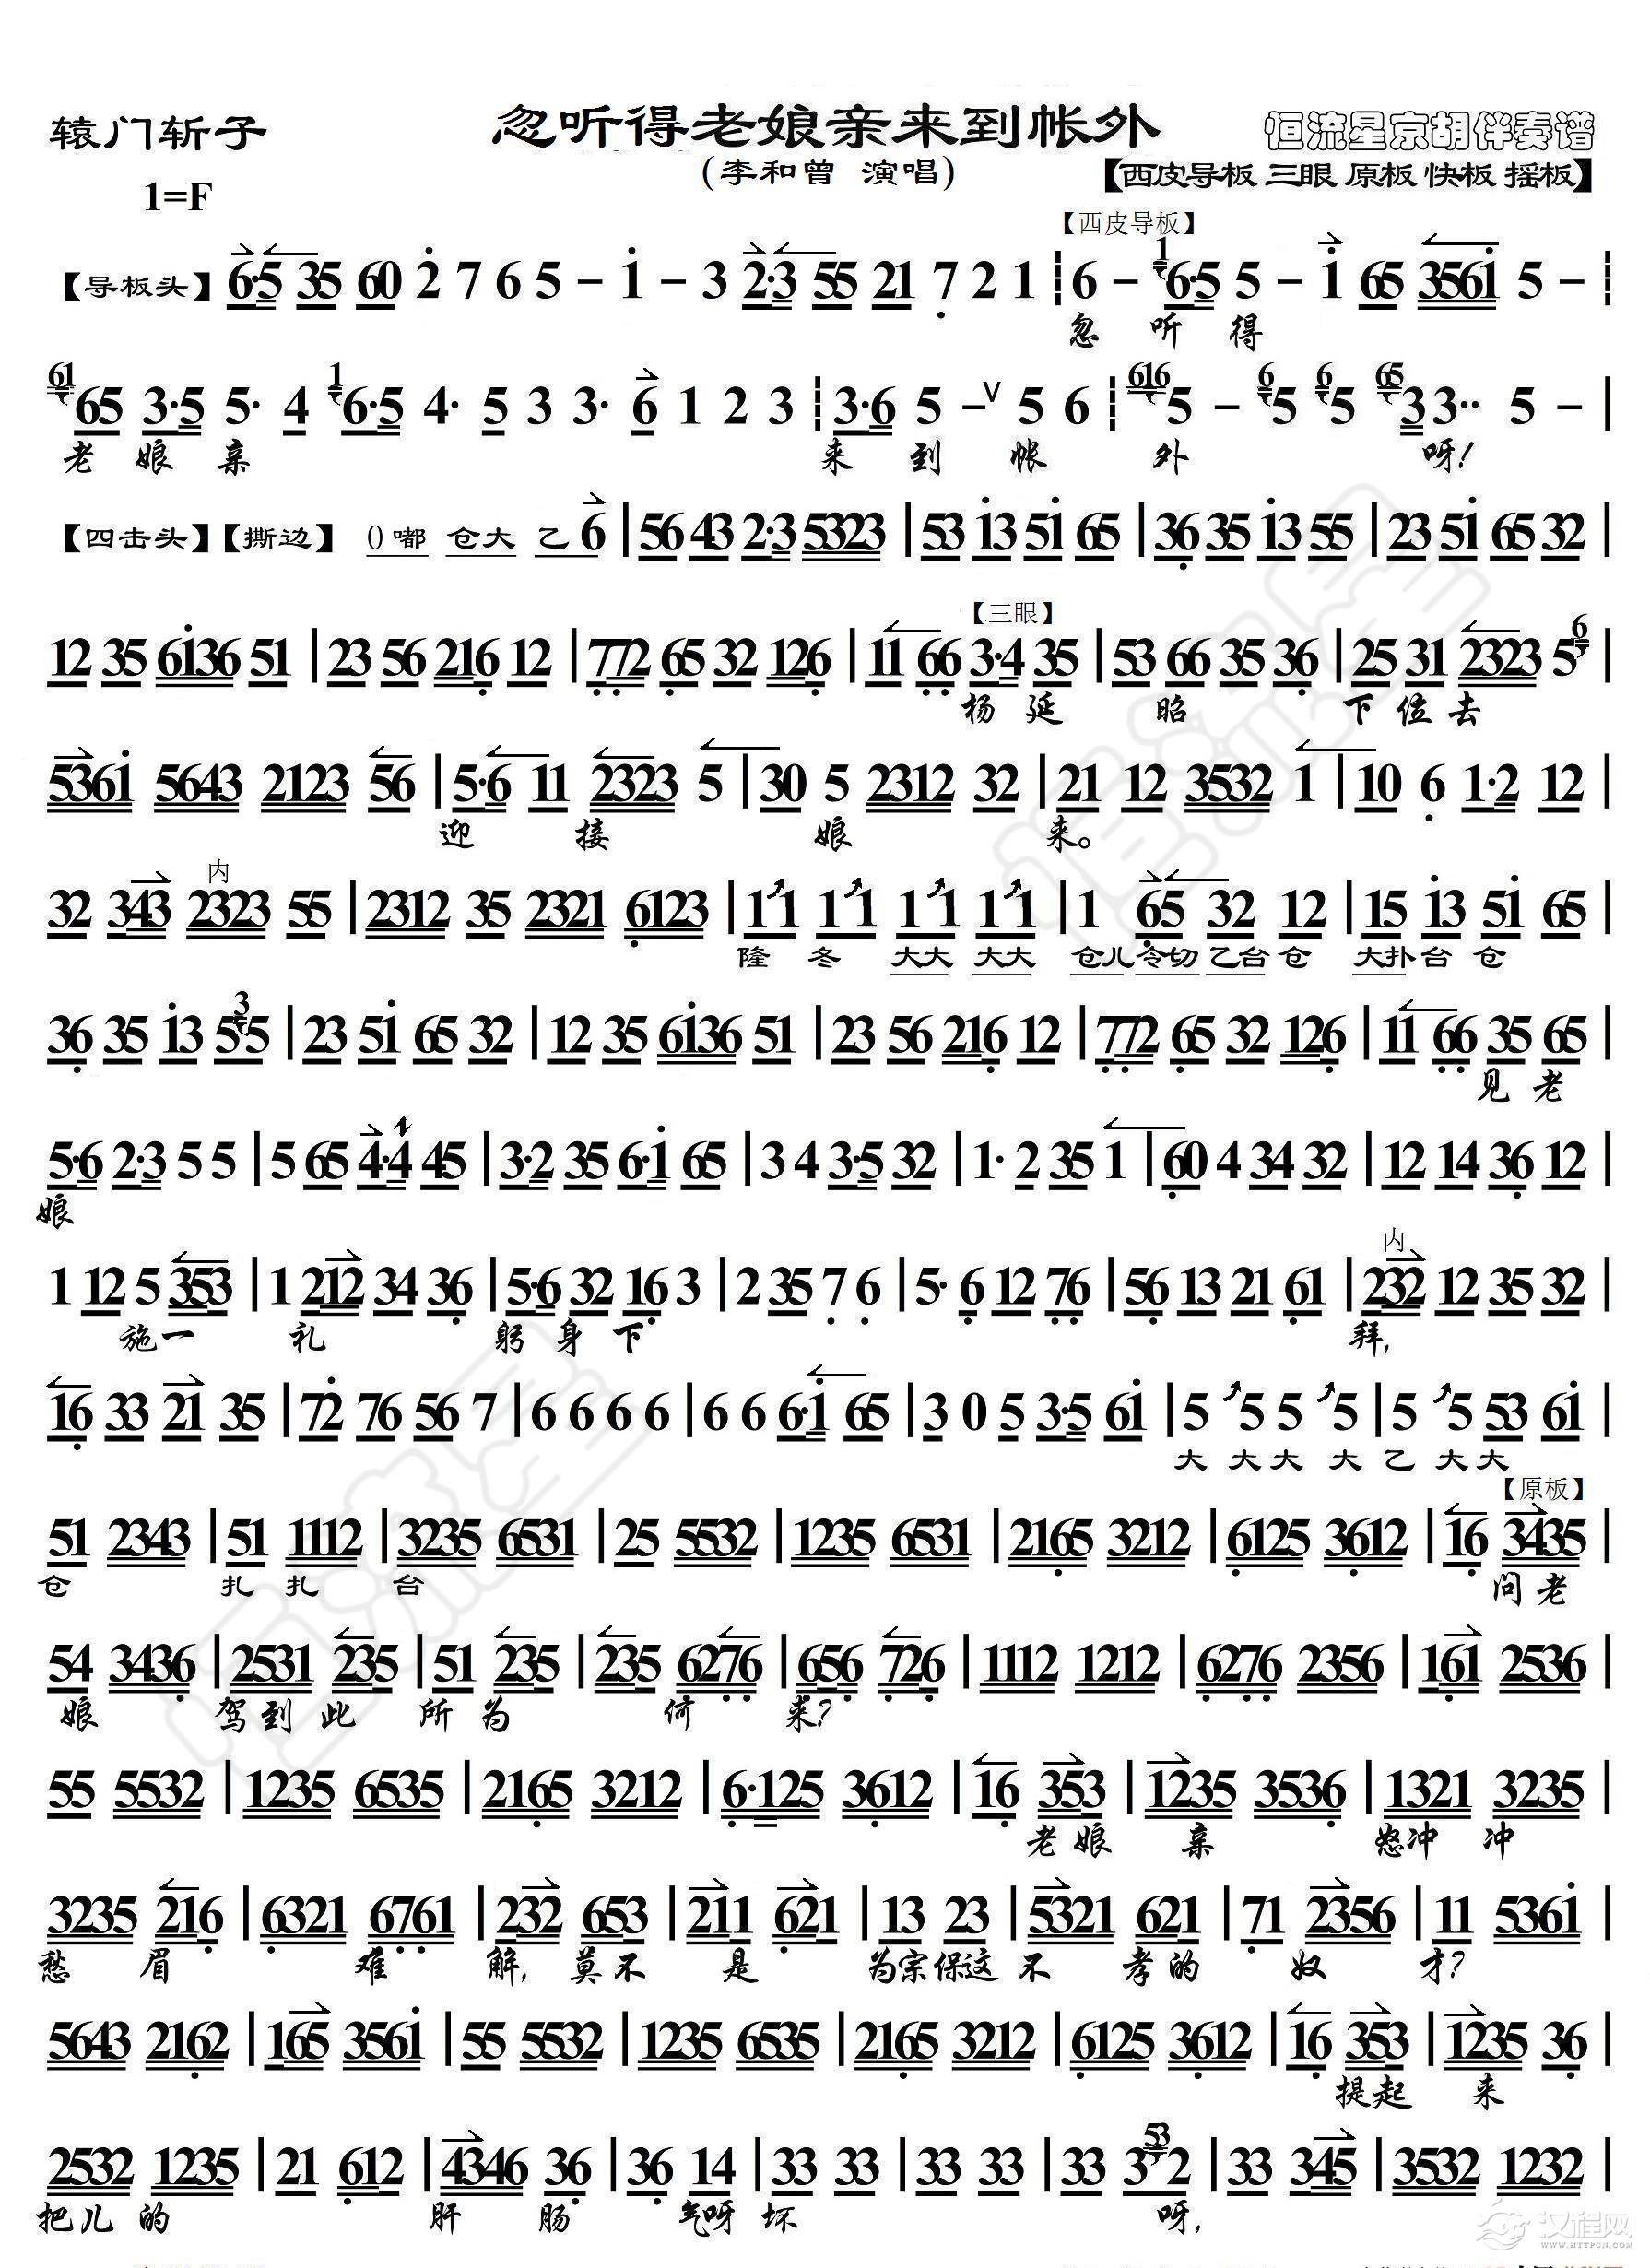 辕门斩子
忽听得老娘亲来到帐外
恒流星京胡伴奏谱
(李和曾 演唱)
【西皮导板 三眼 原板 快板 摇板】
1=F
【西皮导板】
【导板头】 6·5 35 60 2 7 6 5 - 1 - 3 2·3 55 21 7 2 1 ┆ 6 - 1 6·5 5 - 1 65 3561 5 - ┆
忽 听 得
61 65 3·5 5· 4 1 6·5 4· 5 3 3· 6 1 2 3 ┆ 3·6 5 - ∨ 5 6 ┆ 616 5 - 6 5 6 5 65 3 3·· 5 - |
老 娘 亲 来 到 帐 外 呀!
【四击头】【撕边】 0嘟 仓大 乙6 | 56 43 2·3 5323 | 53 13 51 65 | 36 35 13 55 | 23 51 65 32 |
【三眼】
12 35 6136 51 | 23 56 216 12 | 772 65 32 126 | 11 66 3·4 35 | 53 66 35 36 | 25 31 2323 5 6 |
杨 延 昭 下 位 去
5361 5643 2123 56 | 5·6 11 2323 5 | 30 5 2312 32 | 21 12 3532 1 | 10 6 1·2 12 |
迎 接 娘 来。
内
32 343 2323 55 | 2312 35 2321 6123 | 11 11 11 11 | 1 65 32 12 | 15 13 51 65 |
隆 冬 大大 大大 仓儿 令切 乙台 仓 大扑 台 仓
36 35 13 5 3 5 | 23 51 65 32 | 12 35 6136 51 | 23 56 216 12 | 772 65 32 126 | 11 66 35 65 |
见 老
5·6 2·3 5 5 | 5 65 4·4 45 | 3·2 35 6·1 65 | 3 4 3·5 32 | 1· 2 35 1 | 60 4 34 32 | 12 14 36 12 |
娘
内
1 12 5 353 | 1 212 34 36 | 5·6 32 16 3 | 2 35 7 6 | 5· 6 12 76 | 56 13 21 61 | 232 12 35 32 |
施一 礼 躬 身 下 拜,
16 33 21 35 | 72 76 56 7 | 6 6 6 6 | 6 6 6·1 65 | 3 0 5 3·5 61 | 5 5 5 5 | 5 5 53 61 |
大 大 大 大 乙 大 大
【原板】
51 2343 | 51 1112 | 3235 6531 | 25 5532 | 1235 6531 | 2165 3212 | 6125 3612 | 16 3435 |
仓 扎 扎 台 问 老
54 3436 | 2531 235 | 51 235 | 235 6276 | 656 726 | 1112 1212 | 6276 2356 | 161 2536 |
娘 驾 到 此 所 为 何 来?
55 5532 | 1235 6535 | 2165 3212 | 6·125 3612 | 16 353 | 1235 3536 | 1321 3235 |
老 娘 亲 怒冲 冲
3235 216 | 6321 6761 | 232 653 | 211 621 | 13 23 | 5321 621 | 71 2356 | 11 5361 |
愁 眉 难 解, 莫 不 是 为宗保这 不 孝 的 奴 才?
5643 2162 | 165 3561 | 55 5532 | 1235 6535 | 2165 3212 | 6125 3612 | 16 353 | 1235 36 |
提起 来
2532 1235 | 21 612 | 4346 36 | 36 14 | 33 33 | 33 33 | 33 3 53 2 | 33 345 | 3532 1232 |
把儿 的 肝 肠 气呀 坏 呀,
汉程网
WWW.HTTPCN.COM